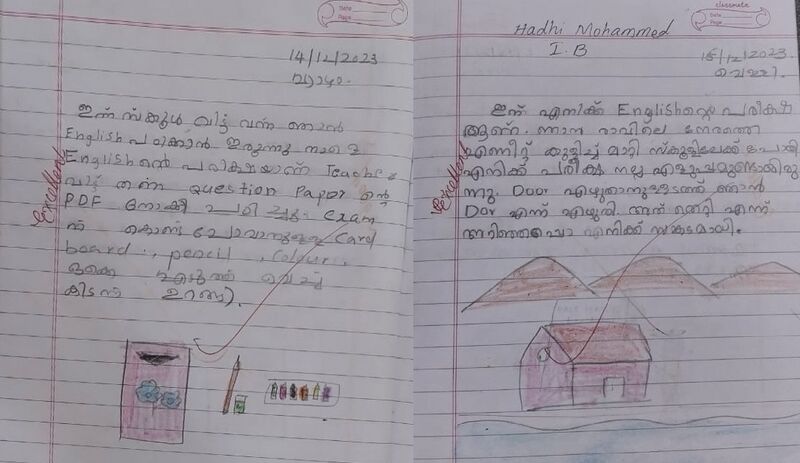 Date
Page
14/12/2023
വ്യാഴം.
ഇന്ന് സ്ക്കൂൾ വിട്ട് വന്ന് ഞാൻ
English പഠിക്കാൻ ഇരുന്നു നാളെ
English ന്റെ പരീക്ഷയാണ് Teacher
വിട്ട് തന്ന question Paper ന്റെ
PDF നോക്കി പഠിച്ചു. Exam
ന് കൊണ്ട് പോവാനുള്ള Card
board, pencil, Colour,
ഒക്കെ എടുത്ത് വെച്ച്
കിടന്ന് ഉറങ്ങി.
Excellent
classmate
Date
Page
Hadhi Mohammed
I.B
15/12/2023
വെള്ളി.
ഇന്ന് എനിക്ക് Englishന്റെ പരീക്ഷ
ആണ്. ഞാൻ രാവിലെ നേരത്തെ
എണീറ്റ് കുളിച്ച് മാറ്റി സ്കൂളിലേക്ക് പോയി
എനിക്ക് പരീക്ഷ നല്ല എളുപ്പമുണ്ടായിരു
ന്നു. Door എഴുതാനുള്ളടത്ത് ഞാൻ
Dor എന്ന് എഴുതി. അത് തെറ്റി എന്ന്
അറിഞ്ഞപ്പൊ എനിക്ക് സങ്കടമായി.
Excellent